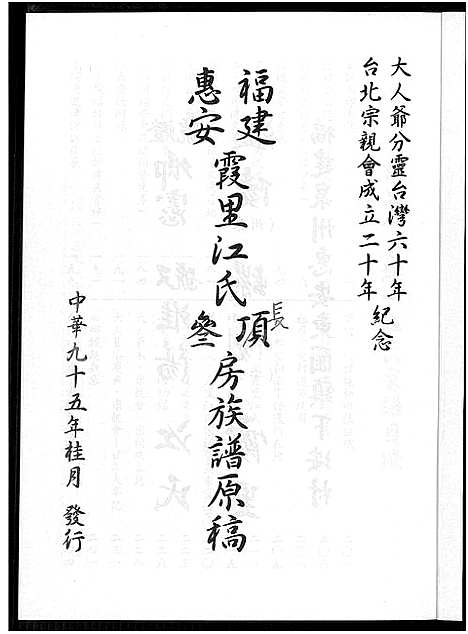 大人爺分靈台灣六十年
台北宗親會成立二十年
紀念
福建
惠安
霞里江氏
長
頂
叄
房族譜原稿
中華九十五年桂月 發行